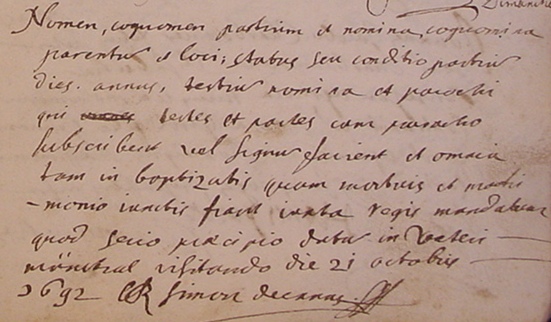 Dimanche
Nomen, cognomen partium et nomina, cognomina
parentum et loci, status seu conditio partium
dies. annus, testium nomina et parochi
qui testes et partes cum parocho
subscribent vel signum facient et omnia
tam in baptizatis quam mortuis et matri
-monio iunctis fiant iuxta regis mandatum
quod serio præcipio datum in
visitando die 21 octobris
1692 Simon decanus